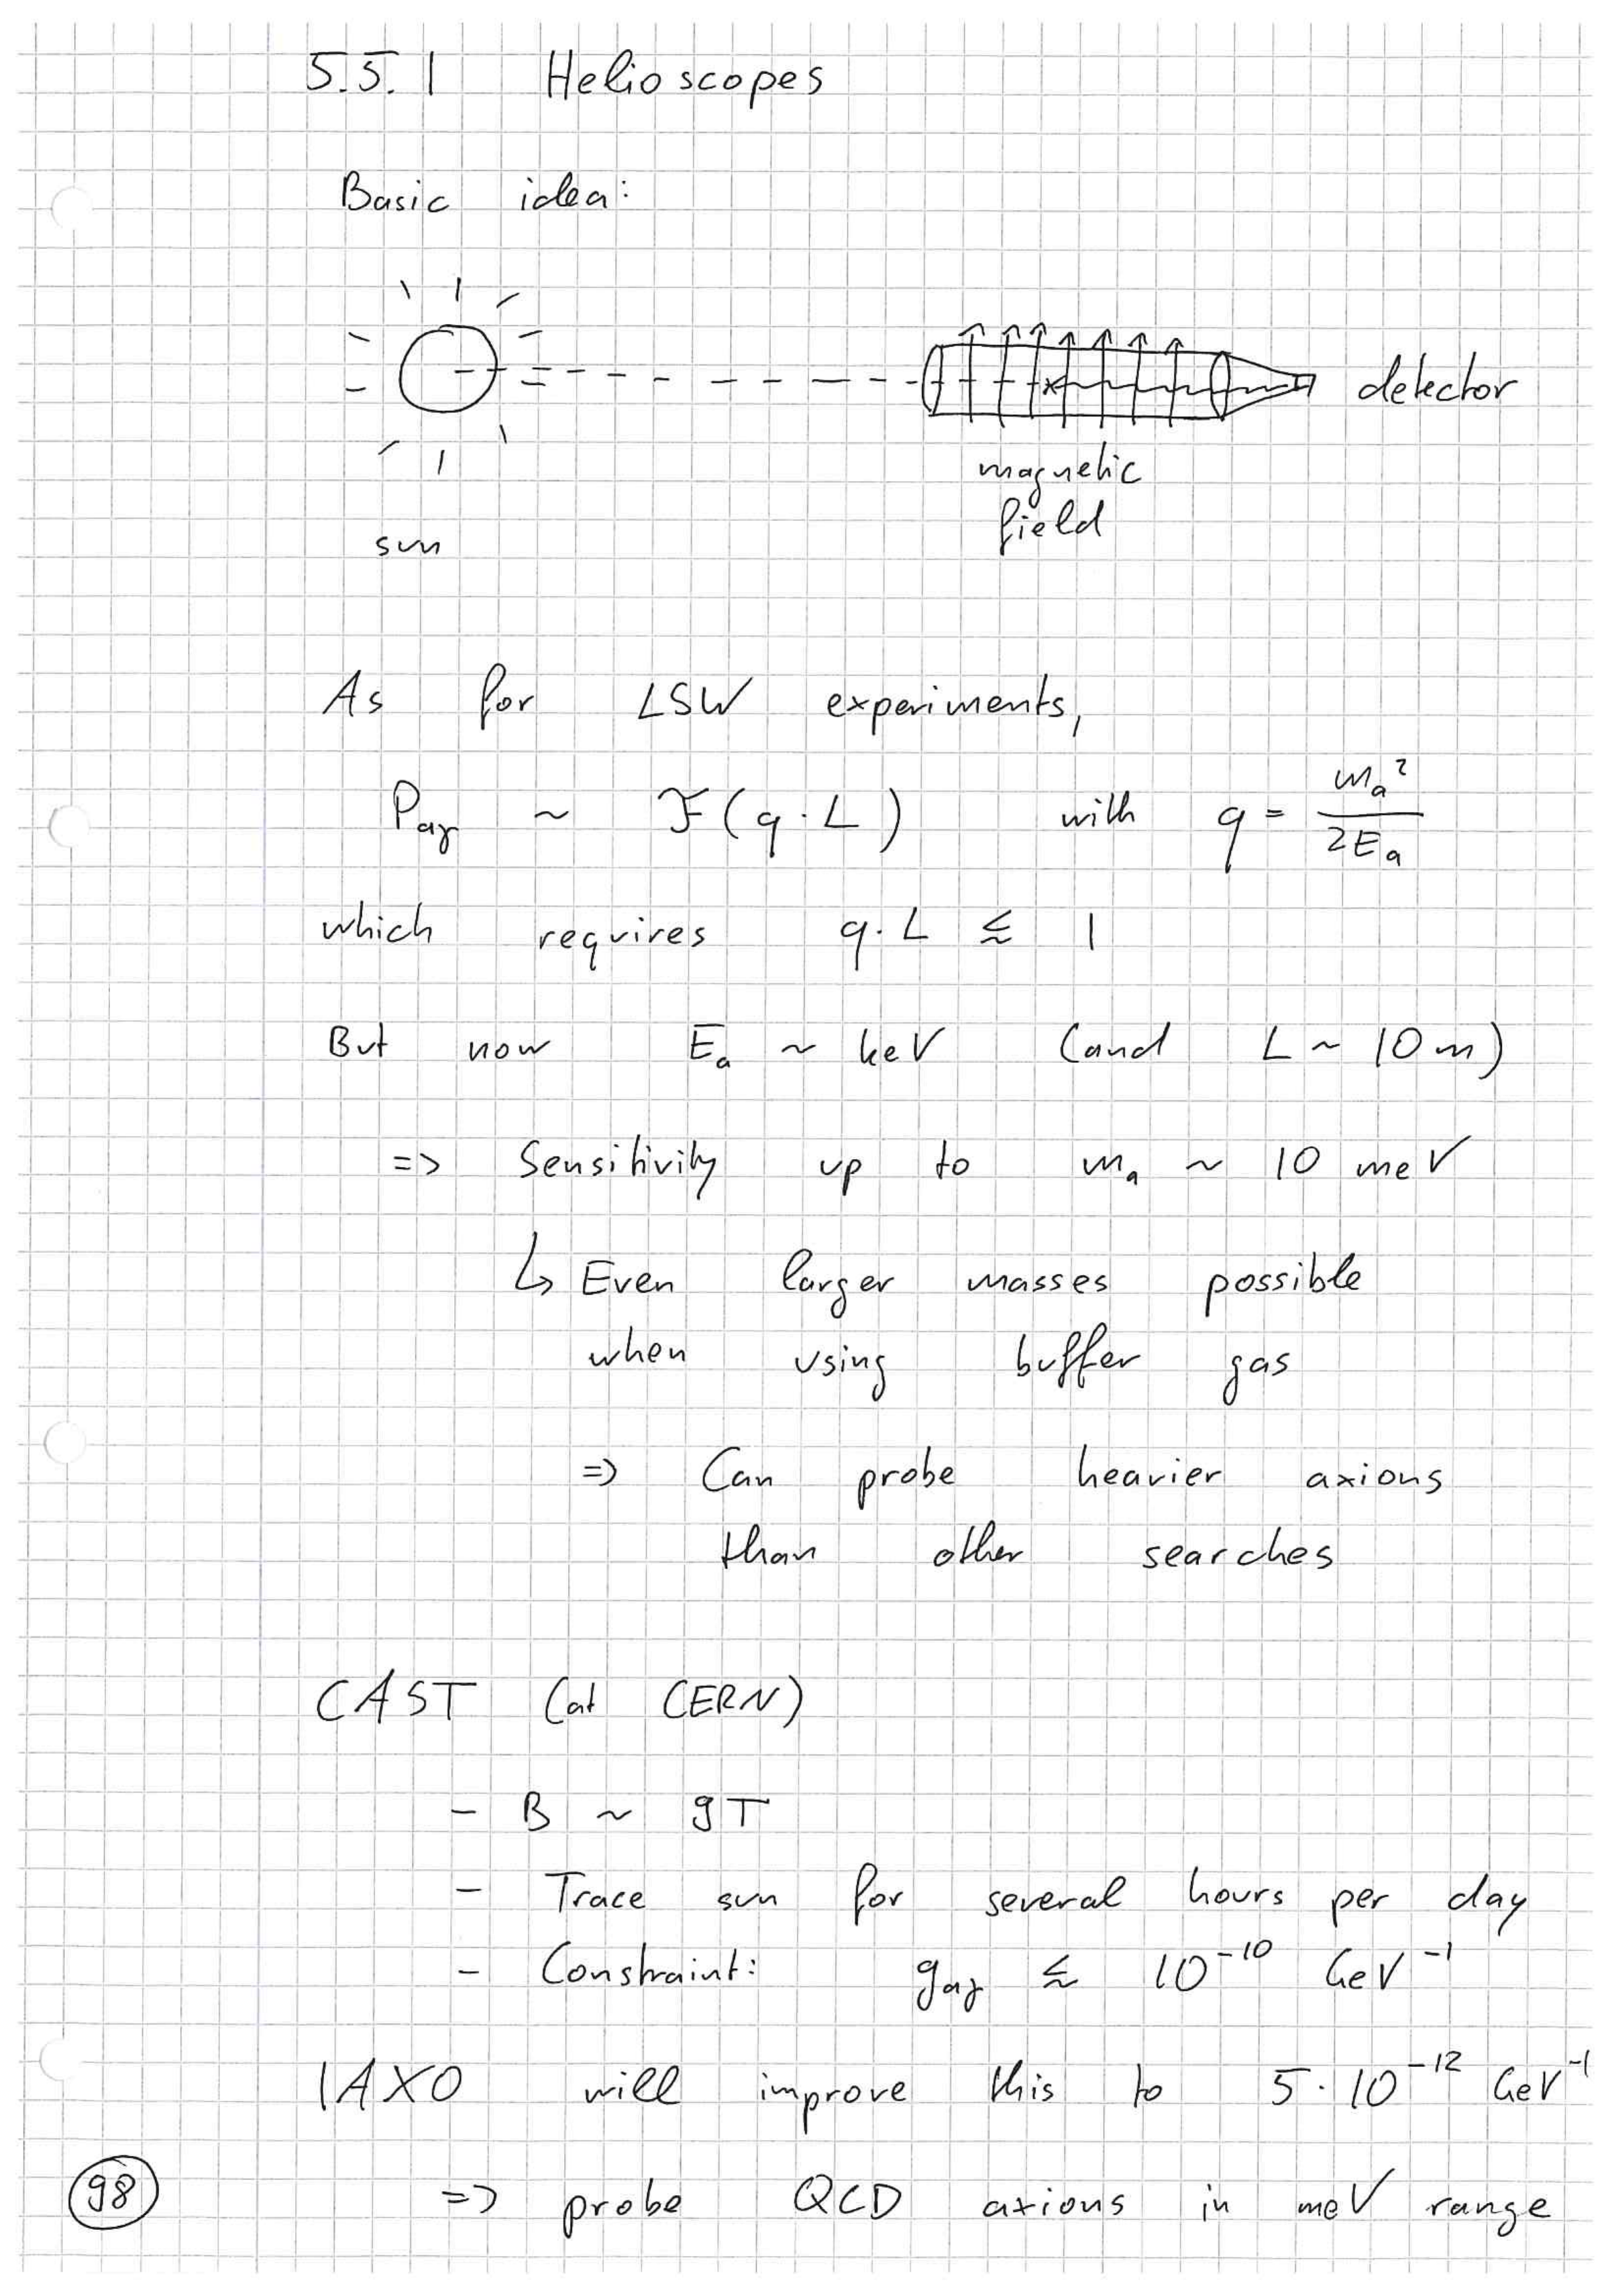 5.5.1 Helioscopes
Basic idea:
detector
magnetic
field
sun
As for LSW experiments,
P_aγ ~ F(q·L) with q = m_a² / 2E_a
which requires q·L ≲ 1
But now E_a ~ keV (and L ~ 10 m)
=> Sensitivity up to m_a ~ 10 meV
↳ Even larger masses possible
when using buffer gas
=> Can probe heavier axions
than other searches
CAST (at CERN)
- B ~ 9T
- Trace sun for several hours per day
- Constraint: g_aγ ≲ 10⁻¹⁰ GeV⁻¹
IAXO will improve this to 5·10⁻¹² GeV⁻¹
98
=> probe QCD axions in meV range